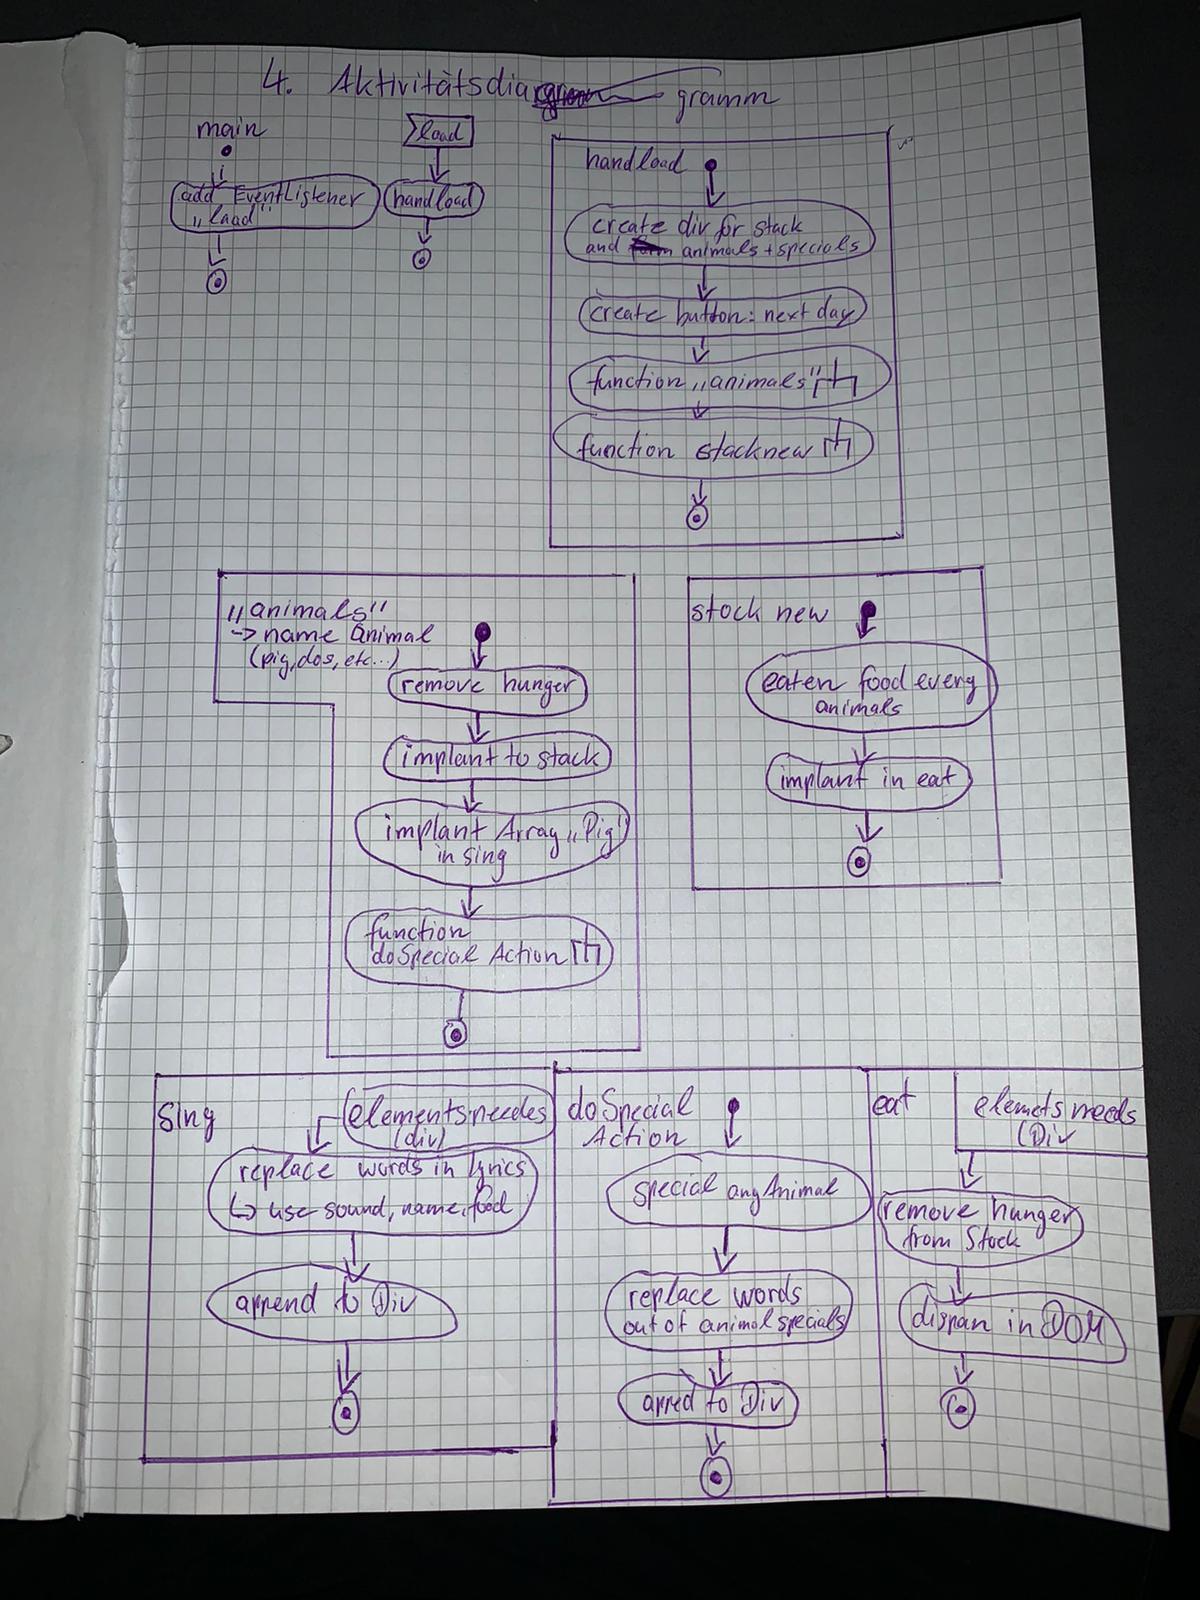 4. Aktivitätsdia gramm
main
add EventListener
"load"
load
handload
handload
create div for stack
and animals + specials
create button: next day
function „animals"
function stacknew
„animals"
-> name Animal
(pig, dos, etc...)
remove hunger
implant to stack
implant Array „Pig"
in sing
function
doSpecial Action
stock new
eaten food every
animals
implant in eat
Sing
elementsneedes
(div)
replace words in lyrics
↳ use sound, name, food
append to Div
doSpecial
Action
special anyAnimal
replace words
out of animal specials
apped to Div
eat
elemets needs
(Div
remove hunger
from Stock
in DOM